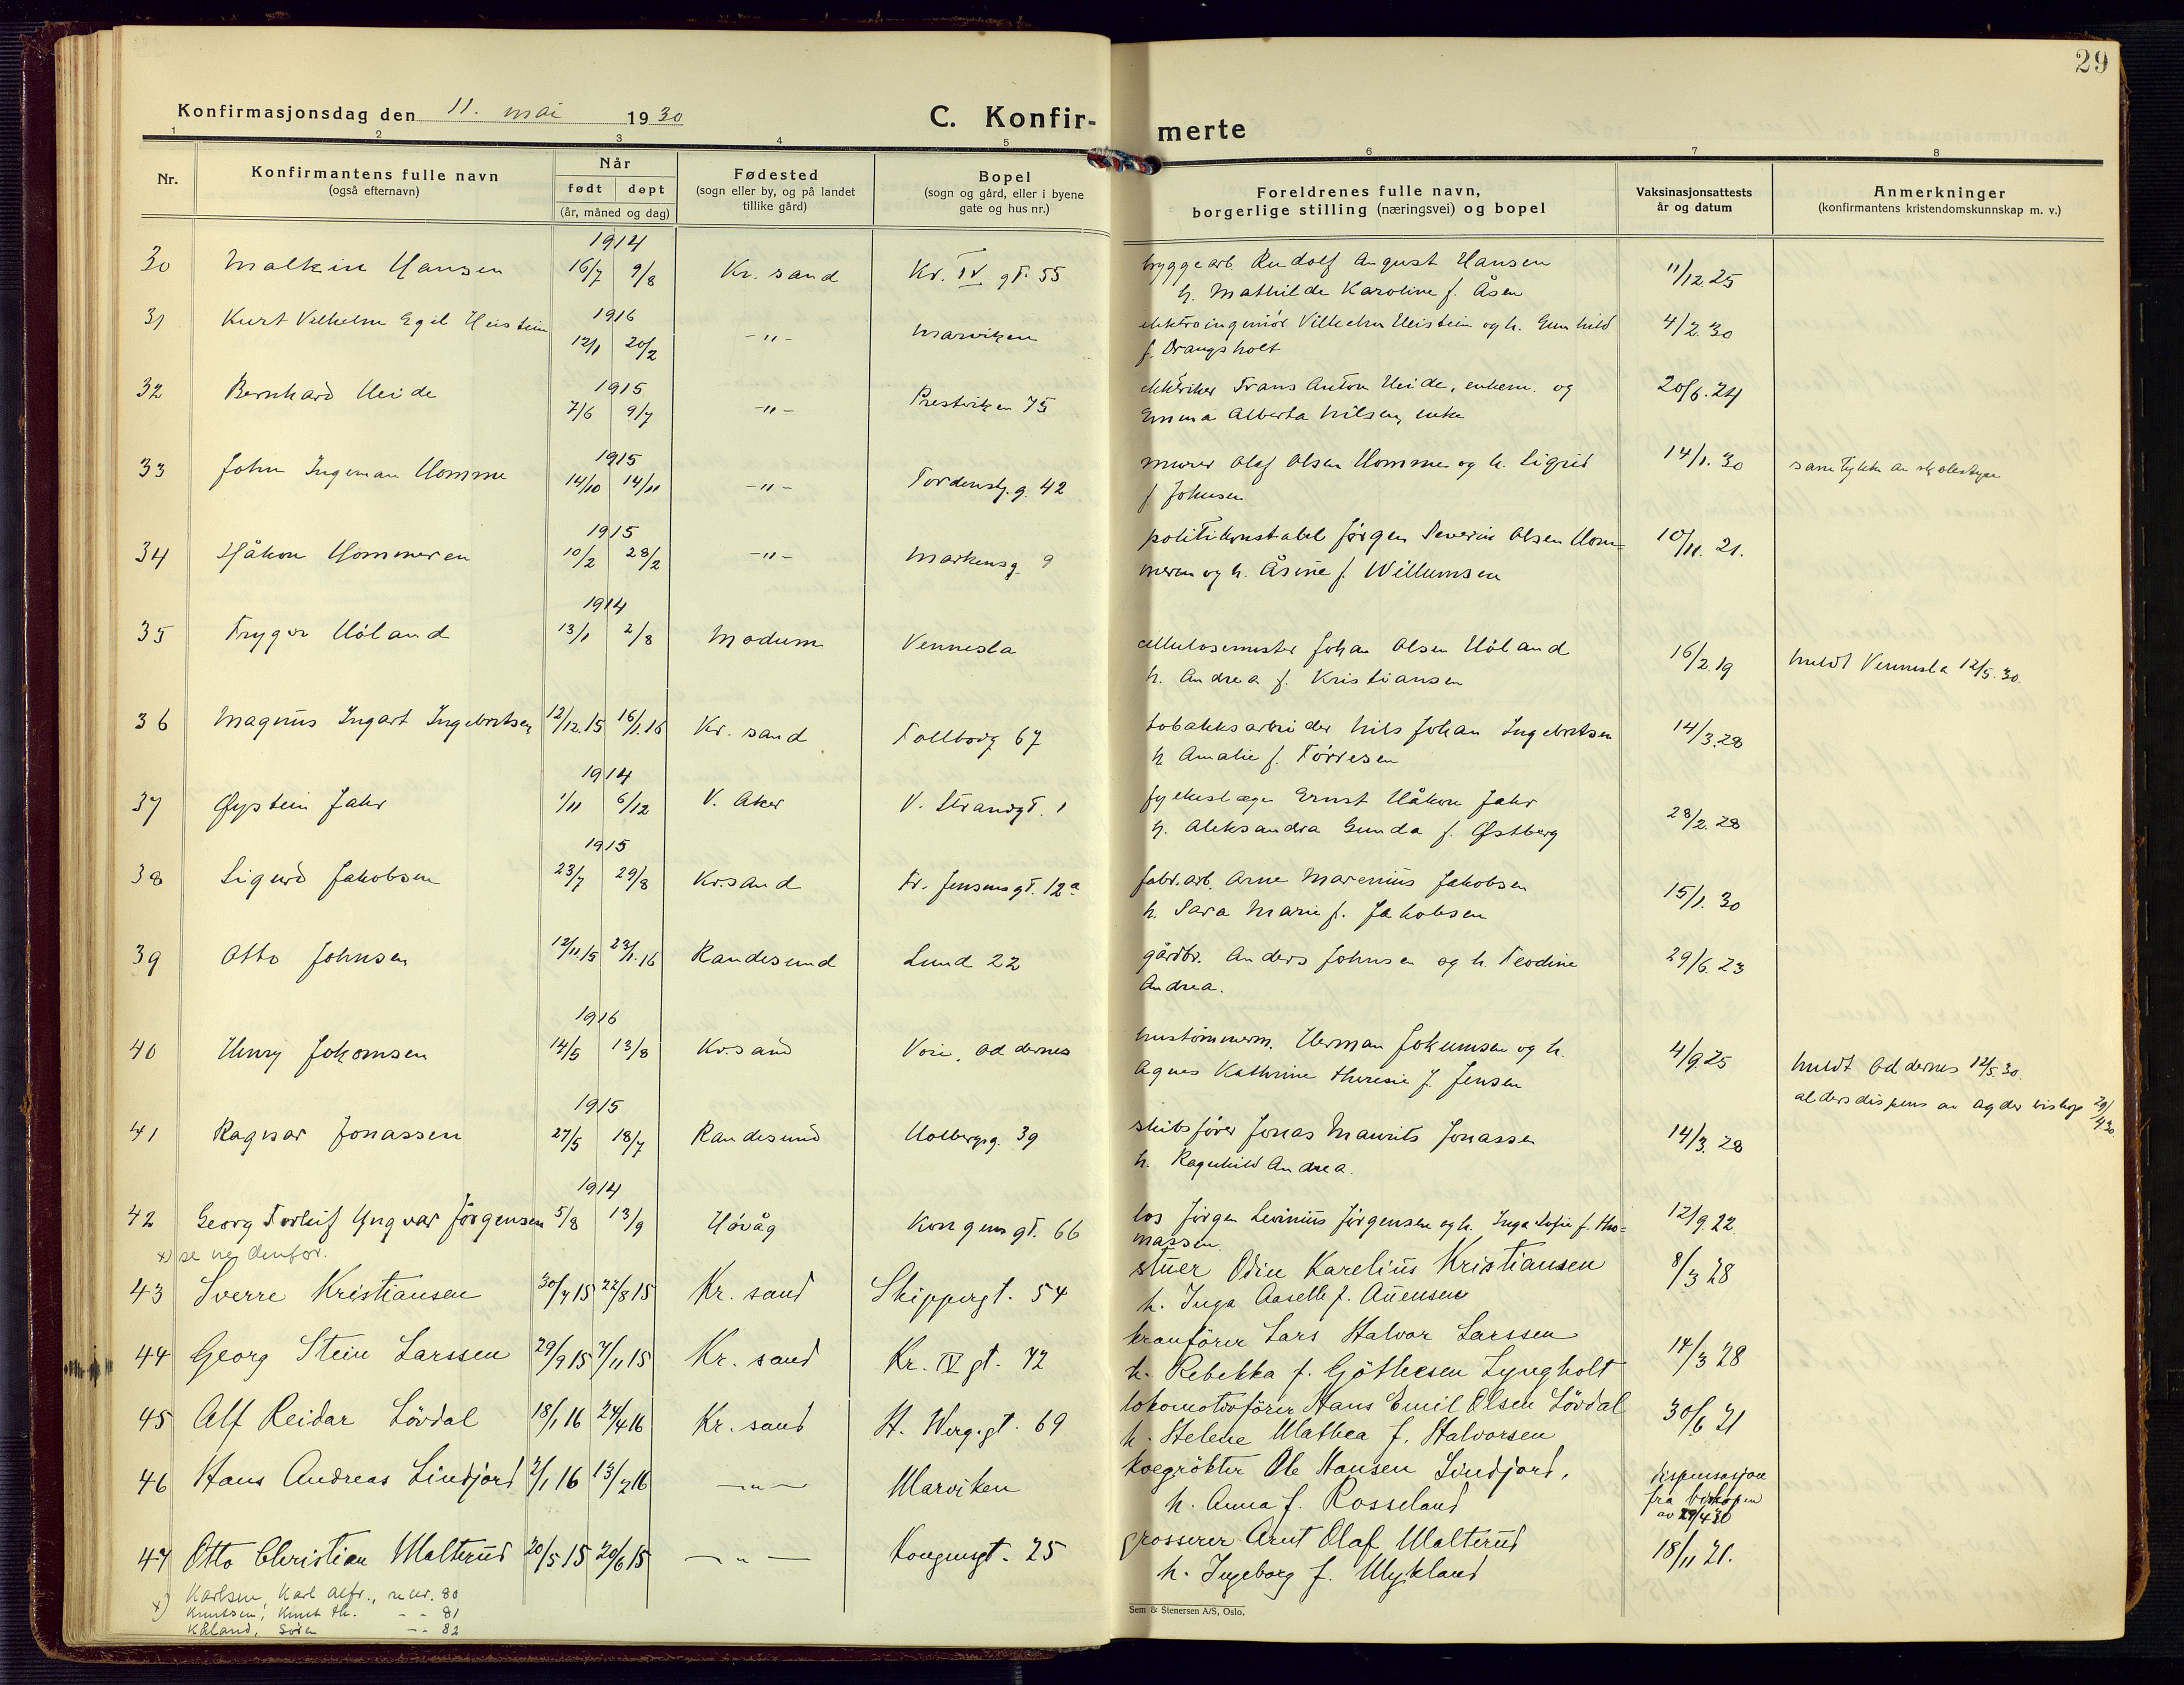 29
Konfirmasjonsdag den 11. mai 1930
C. Konfir-
merte
1 2 3 4 5 6 7 8
Nr.
Konfirmantens fulle navn
(også efternavn)
Når
født døpt
(år, måned og dag)
Fødested
(sogn eller by, og på landet
tillike gård)
Bopel
(sogn og gård, eller i byene
gate og hus nr.)
Foreldrenes fulle navn,
borgerlige stilling (næringsvei) og bopel
Vaksinasjonsattests
år og datum
Anmerkninger
(konfirmantens kristendomskunnskap m. v.)
1914
30 Malkin Hansen 16/7 9/8 Kr. sand Kr. IV gt. 55 bryggearb. Rudolf August Hansen 11/12.25
h. Mathilde Karoline f. Åsen
31 Kurt Vilhelm Egil Heistein 1916 elektroingeniör Vilhelm Heistein og h. Gunhild 4/2.30
12/1 20/2 -"- Marviken f. Drangsholt
32 Bernhard Heide 1915 elektriker Frans Anton Heide, enkem. og 20/6.24
7/6 9/7 -"- Prestviken 75 Emma Alberta Nilsen, enke
33 John Ingeman Homme 1915 murer Olaf Olsen Homme og h. Sigrid 14/1.30 samtykke av skolestyre
14/10 14/11 -"- Tordenskj.g. 42 f. Johnsen
1915
34 Håkon Hommeren 10/2 28/2 -"- Markensg. 9 politikonstabel Jörgen Severin Olsen Hom- 10/11. 21.
meren og h. Åsine f. Willumsen
1914
35 Trygve Höland 13/1 2/8 Modum Vennesla cellulosemester Johan Olsen Höland 16/2.19 meldt Vennesla 12/5.30.
h. Andrea f. Kristiansen
36 Magnus Ingart Ingebretsen 12/12.15 16/1.16 Kr. sand Tollbodg 67 tobakksarbeider Nils Johan Ingebretsen 14/3.28
h Amalie f. Törresen
1914
37 Øystein Jahr 1/11 6/12 V. Aker V. Strandgt. 1 fylkeslege Ernst Håkon Jahr 28/2.28
h. Aleksandra Gunda f. Østberg
1915
38 Sigurd Jakobsen 23/7 29/8 Kr.sand Fr. Jensensgt. 12a fabr.arb. Arne Marenius Jakobsen 15/1.30
h. Sara Marie f. Jakobsen
39 Otto Johnsen 12/11.15 23/1.16 Randesund Lund 22 gårdbr. Anders Johnsen og h. Teodine 29/6.23
Andrea.
1916
40 Henry Jokomsen 14/5 13/8 Kr.sand Voie, Oddernes hustömmerm. Herman Jokumsen og h. 4/9.25 meldt Oddernes 12/5.30.
Agnes Kathrine Theresie f. Jensen
aldersdispens av Agder biskop 29/4 30
1915
41 Ragnar Jonassen 27/5 18/7 Randesund Holbergsg. 39 skibsförer Jonas Maurits Jonassen 14/3.28
h. Ragnhild Andrea.
1914
42 Georg Torleif Yngvar Jörgensen 5/8 13/9 Hövåg Kongensgt. 66 los Jörgen Levinius Jörgensen og h. Inga Sofie f. Tho- 12/9.22
massen.
x) se nedenfor.
43 Sverre Kristiansen 30/7 15 22/8 15 Kr. sand Skippergt. 54 stuer Odin Karelius Kristiansen 8/3 28
h. Inga Aaselle f. Auensen
44 Georg Stein Larssen 29/9 15 7/11 15 Kr. sand Kr. IV gt. 72 kranförer Lars Halvor Larssen 14/3 28
h. Rebekka f. Göthesen Lyngholt
45 Alf Reidar Lövdal 18/1 16 24/4 16 Kr. sand H. Werg.gt. 69 lokomotivförer Hans Emil Olsen Lövdal 30/6 21
h. Helene Mathea f. Halvorsen
46 Hans Andreas Lindjord 2/1 16 13/2 16 -"- Marviken Ole Hansen Lindjord, dispensasjon
h. Anna f. Rosseland fra biskopen
av 29/4 30
47 Otto Christian Malterud 20/5 15 20/6 15 -"- Kongensgt. 25 grosserer Arnt Olaf Malterud 18/11 21.
h. Ingeborg f. Mykland
x) Karlsen, Karl Alfr., se nr. 80
Knutsen, Knut Th. - - 81
Kåland, Sören - - 82
Sem & Stenersen A/S, Oslo.